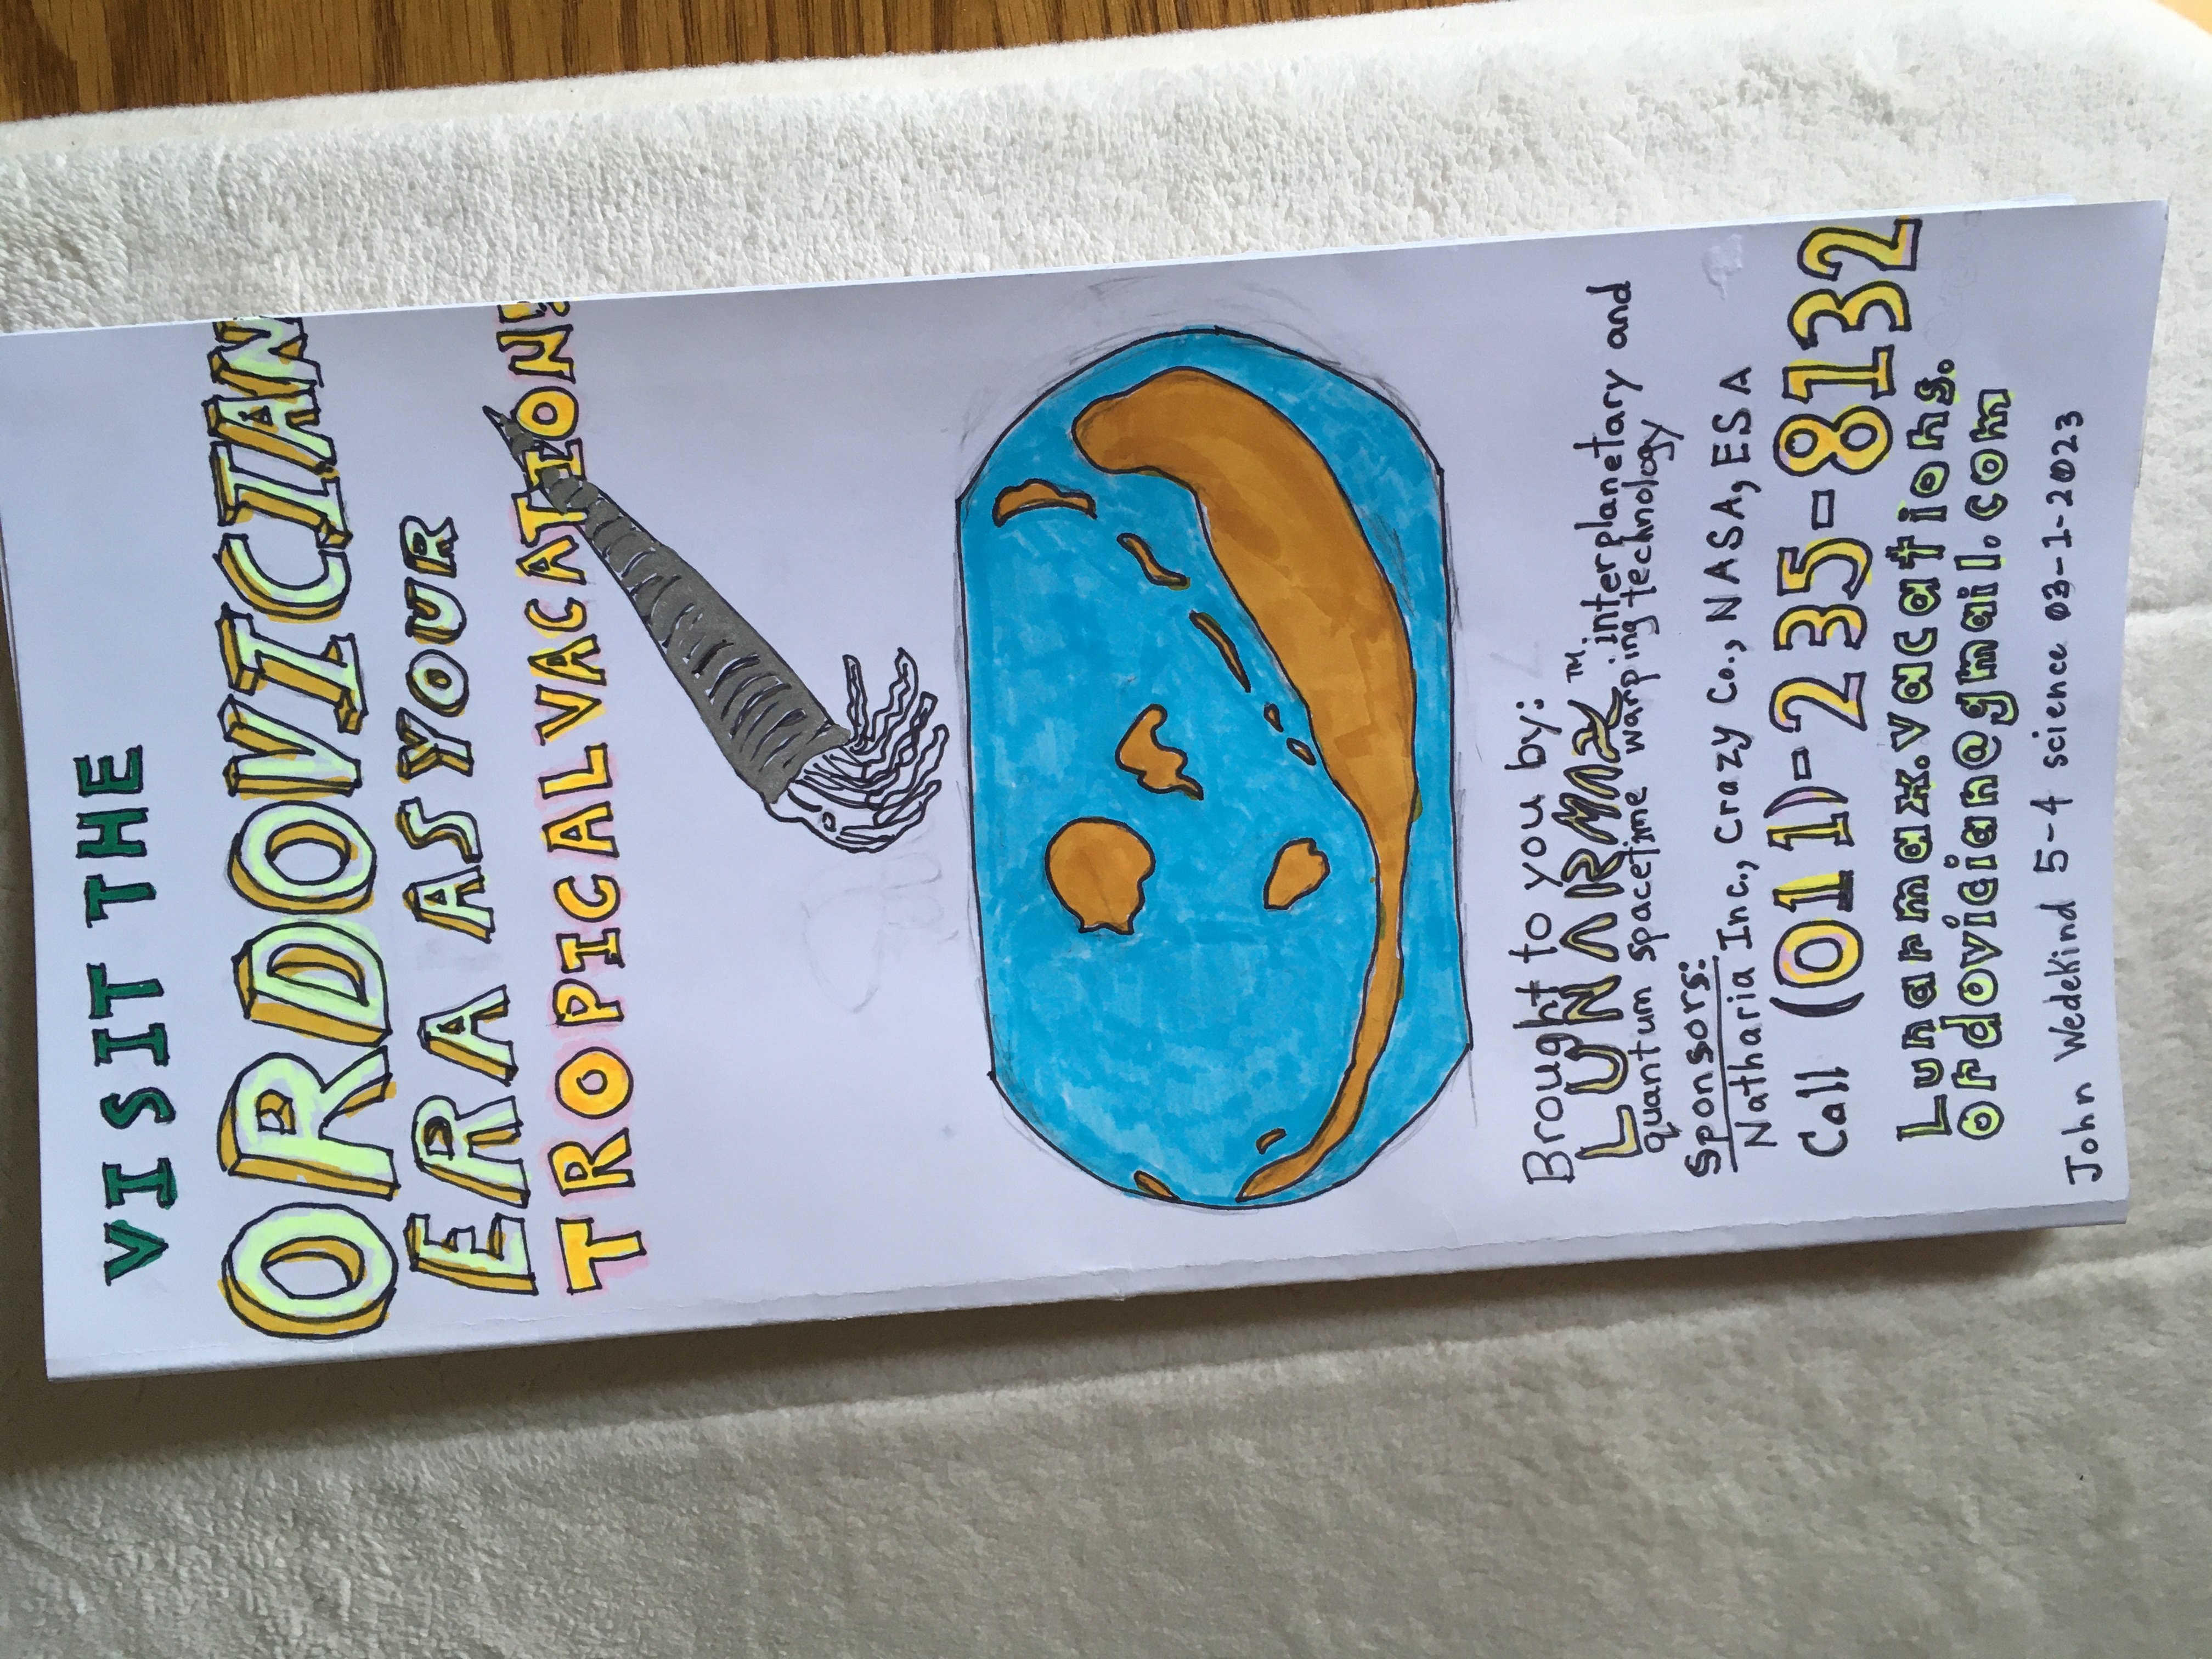 VISIT THE
ORDOVICIAN
ERA AS YOUR
TROPICAL VACATION!
Brought to you by:
LUNARMAX™ interplanetary and
quantum spacetime warping technology
Sponsors:
Natharia Inc., Crazy Co., NASA, ESA
Call (011)-235-8132
Lunarmax.vacations.
ordovician@gmail.com
John Wedekind 5-4 science 03-1-2023